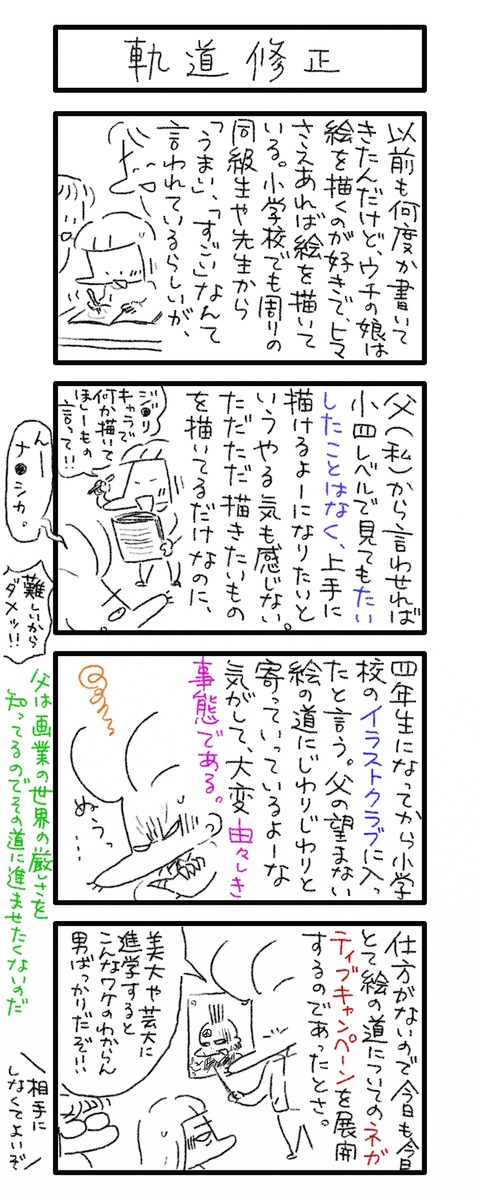 軌道修正
以前も何度か書いて
きたんだけど、ウチの娘は
絵を描くのが好きで、ヒマ
さえあれば絵を描いて
いる。小学校でも周りの
同級生や先生から
「うまい」、「すごい」なんて
言われているらしいが、
父（私）から言わせれば
小四レベルで見てもたい
したことはなく、上手に
描けるよーになりたいと
いうやる気も感じない。
ただただ描きたいもの
を描いてるだけなのに、
ジ●リ
キャラで
何か描いて
ほしーもの
言って!!
んー
ナ●シカ。
難しいから
ダメッ!!
四年生になってから小学
校のイラストクラブに入っ
たと言う。父の望まない
絵の道にじわりじわりと
寄っていっているよーな
気がして、大変由々しき
事態である。
ぬぅっ…
父は画業の世界の厳しさを
知ってるのでその道に進ませたくないのだ
仕方がないので今日も今日
とて絵の道についてのネガ
ティブキャンペーンを展開
するのであったとさ。
美大や芸大に
進学すると
こんなワケのわからん
男ばっかりだぞ!!
相手に
しなくてよいぞ